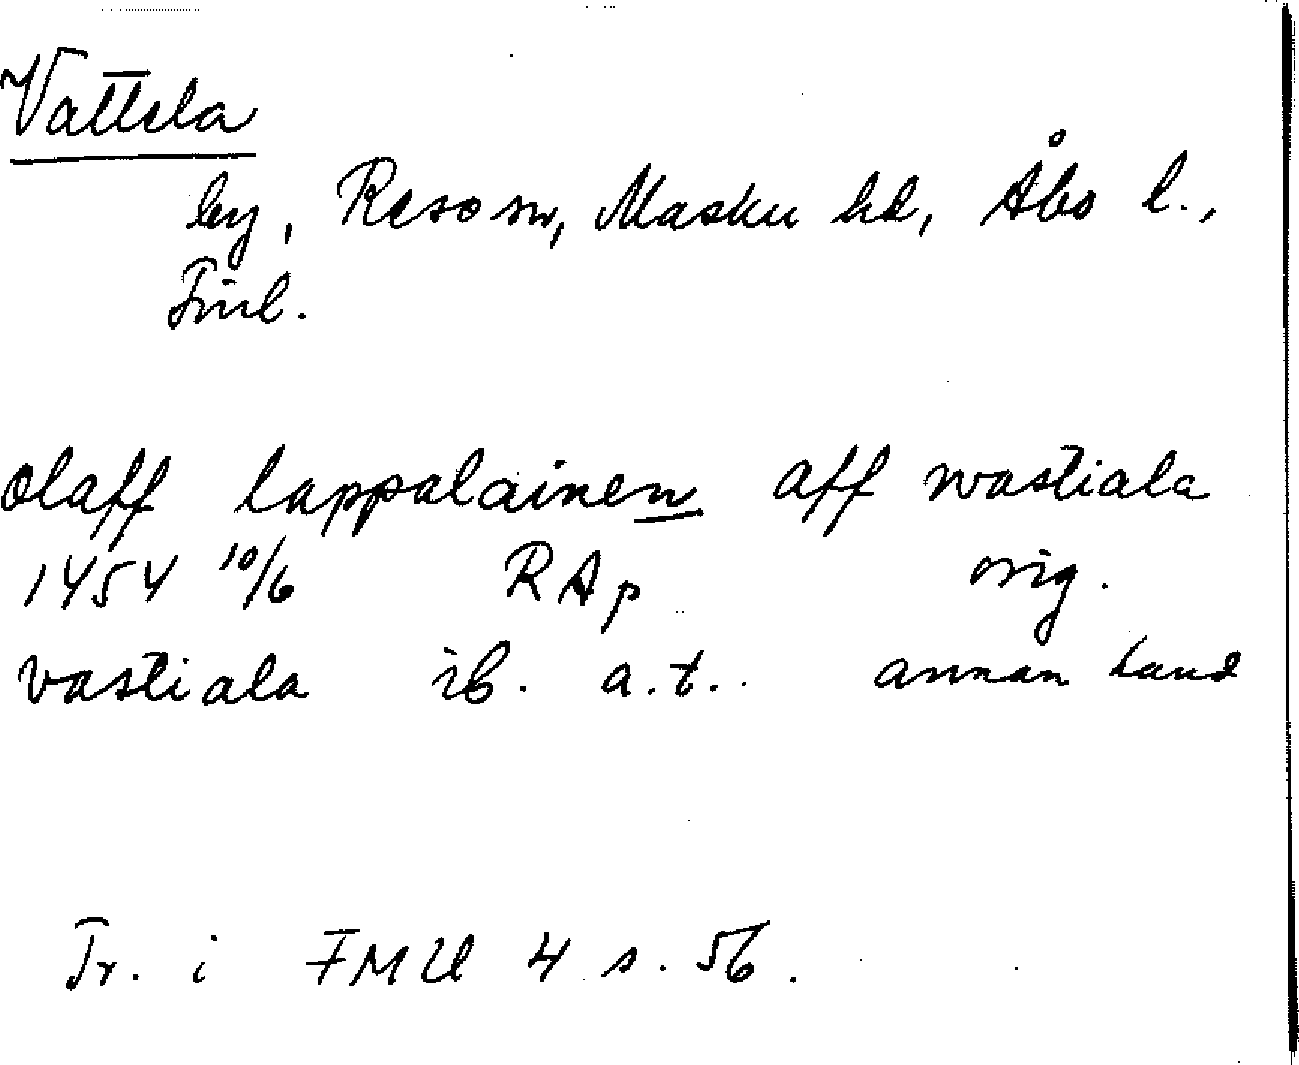 Vattela
by, Reso sn, Masku hd, Åbo l.,
Finl.
olaff lappalainen aff wastiala
1454 10/6 RAp orig.
vastiala ib. a.t. annan hand
Tr. i FMU 4 s. 56.